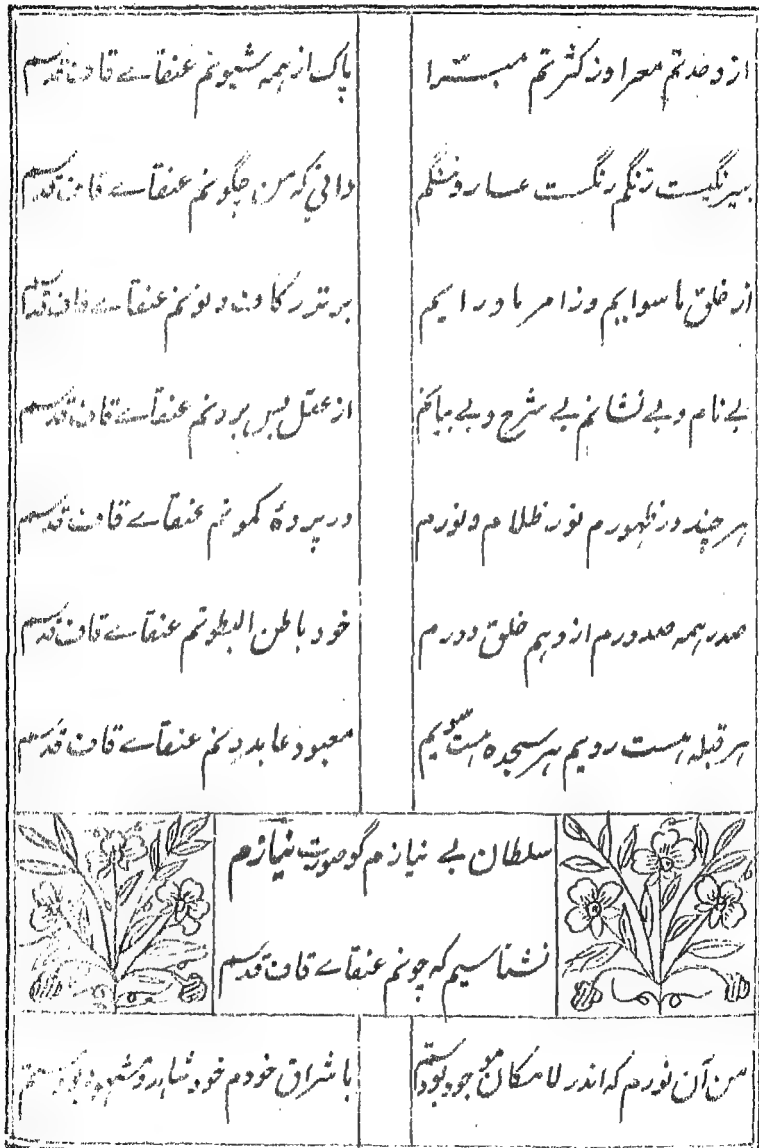 از وحدتم معرا وز کثرتم مبترا
پاک از همه شیونم عنقاے قاف قدسم
بیرنگیست رنگم رنگست عار و ننگم
دانی که من چگونم عنقاے قاف قدسم
از خلق ماسوایم وز امر ماورایم
برتر ز کاف و نونم عنقاے قاف قدسم
بے نام و بے نشانم بے شرح و بے بیانم
از عقل بس برونم عنقاے قاف قدسم
هر چند در ظهورم نور ظلام و نورم
در پردهٔ کمونم عنقاے قاف قدسم
صدر همه صدورم از وهم خلق دورم
خود باطن البطونم عنقاے قاف قدسم
هر قبله هست رویم هر سجده هست سویم
معبود عابدونم عنقاے قاف قدسم
سلطان بے نیازم گو صورت نیازم
نشناسیم که چونم عنقاے قاف قدسم
من آن نورم که اندر لامکان موجود بودستم
باشراق خودم خود شاهد و مشهود بودستم